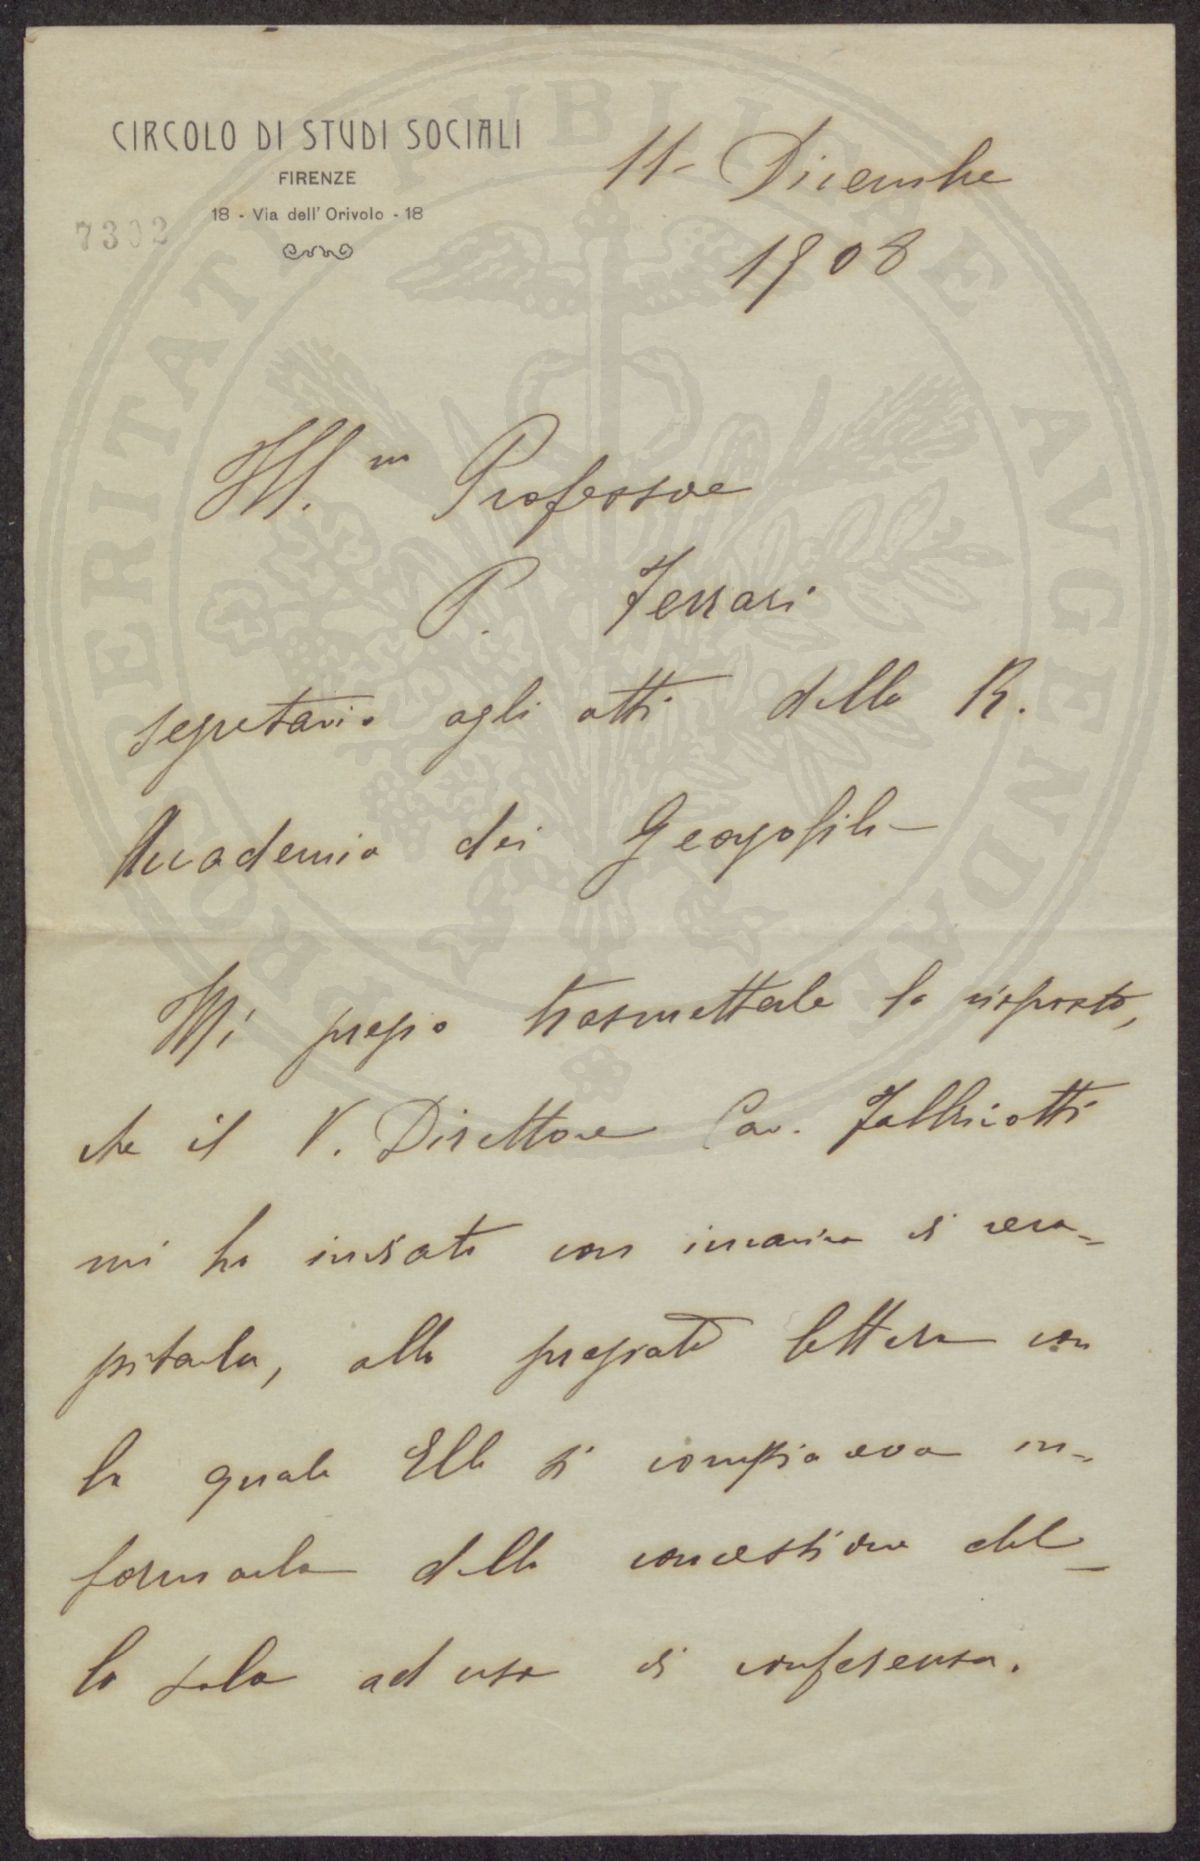 CIRCOLO DI STUDI SOCIALI
FIRENZE
18 - Via dell' Orivolo - 18
7302
11 - Dicembre
1908
Ill.mo Professore
P. Ferrari
segretario agli atti della R.
Accademia dei Georgofili -
Mi pregio trasmetterle la risposta,
che il V. Direttore Cav. Fabbricotti
mi ha inviato con incarico di reca-
pitarla, alla pregiata lettera con
la quale Ella si compiaceva in-
formarla della concessione del-
la sala ad uso di conferenza.
PROSPERITATI PUBLICAE AUGENDAE